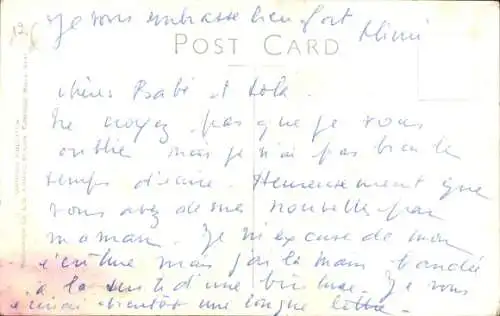 Je vous embrasse bien fort
Mimi
POST CARD
chères Babé et Lola.
Ne croyez pas que je vous
oublie mais je n'ai pas bien le
temps d'écrire. Heureusement que
vous avez de mes nouvelles par
maman. Je m'excuse de mon
écriture mais j'ai la main bandée
à la suite d'une . Je vous
écrirai bientôt une longue lettre.